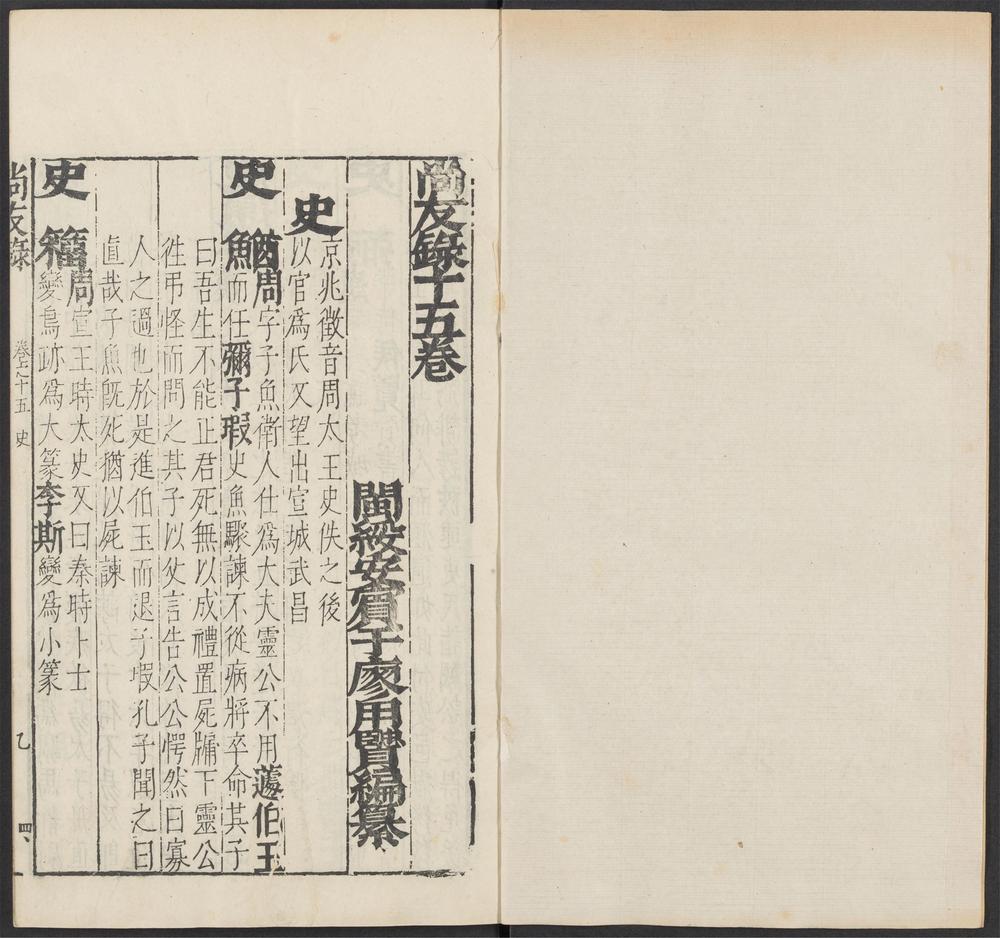 尚友錄十五卷
閩綏安賓于廖用賢編纂
史
京兆徵音周太王史佚之後
以官爲氏又望出宣城武昌
史 魚
猶周字子魚衛人仕爲大夫靈公不用蘧伯玉
而任彌子瑕史魚驟諫不從病將卒命其子
曰吾生不能正君死無以成禮置屍牖下靈公
徃弔怪而問之其子以父言告公公愕然曰寡
人之過也於是進伯玉而退子瑕孔子聞之曰
直哉子魚旣死猶以屍諫
史 籀
周宣王時太史又曰秦時卜士
變鳥跡爲大篆李斯變爲小篆
尚友錄 卷之十五 史 乙 四